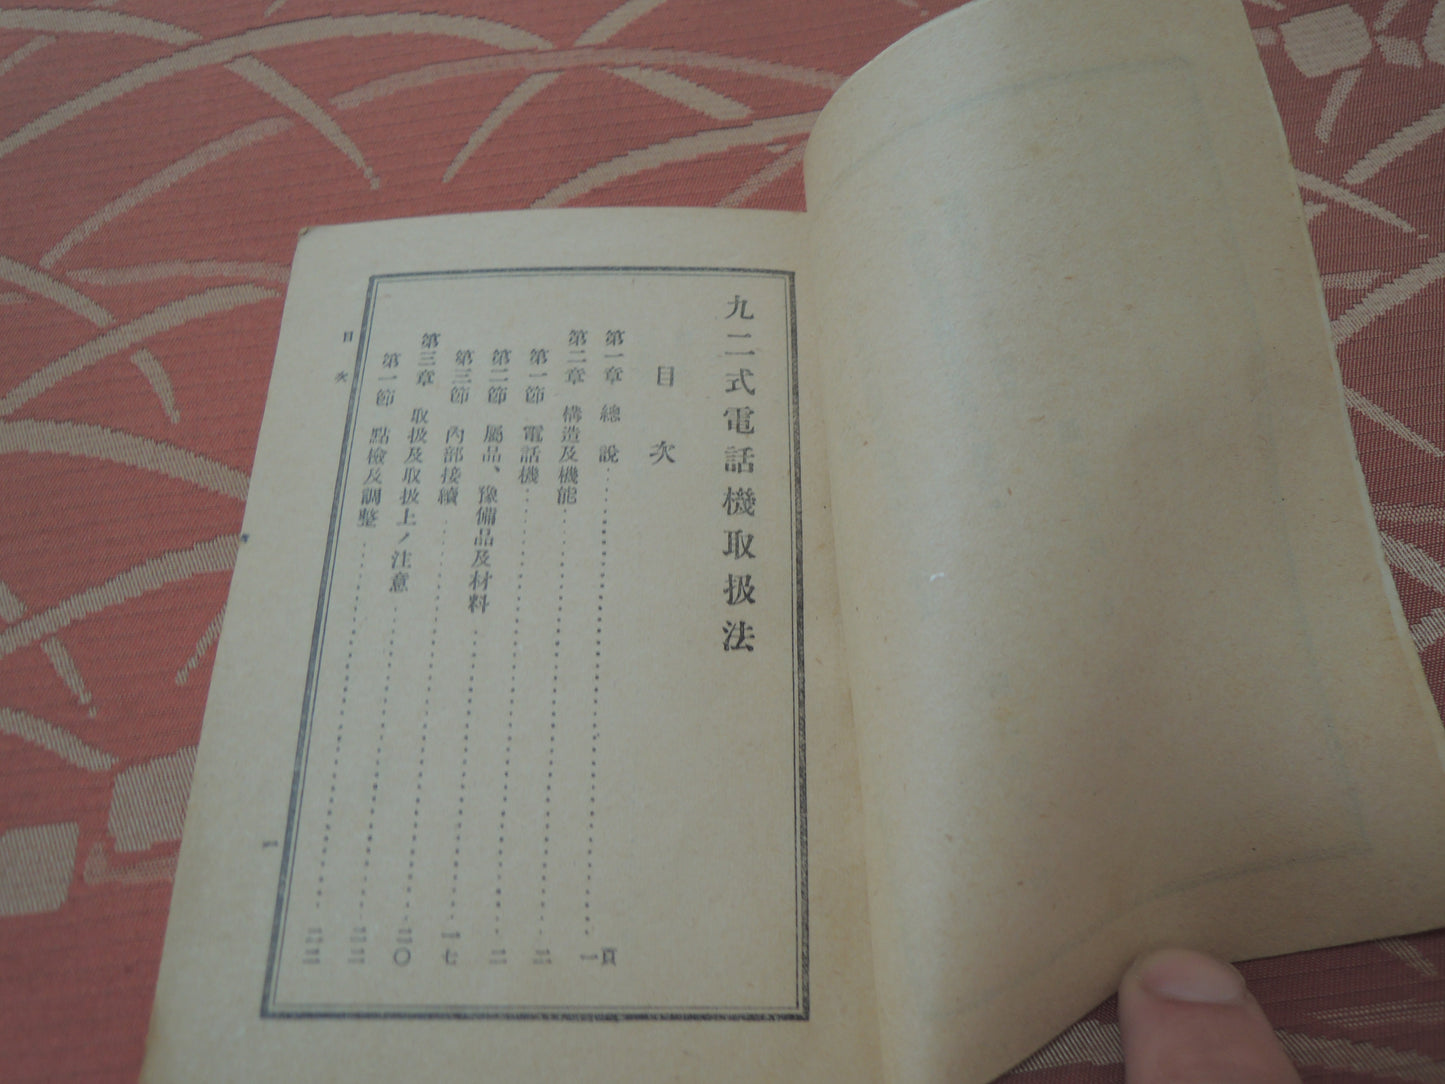 九二式電話機取扱法
目次
頁
第一章 總說……一
第二章 構造及機能……二
第一節 電話機……二
第二節 屬品、豫備品及材料……一七
第三節 內部接續……二〇
第三章 取扱及取扱上ノ注意……二二
第一節 點檢及調整……二二
目次
一